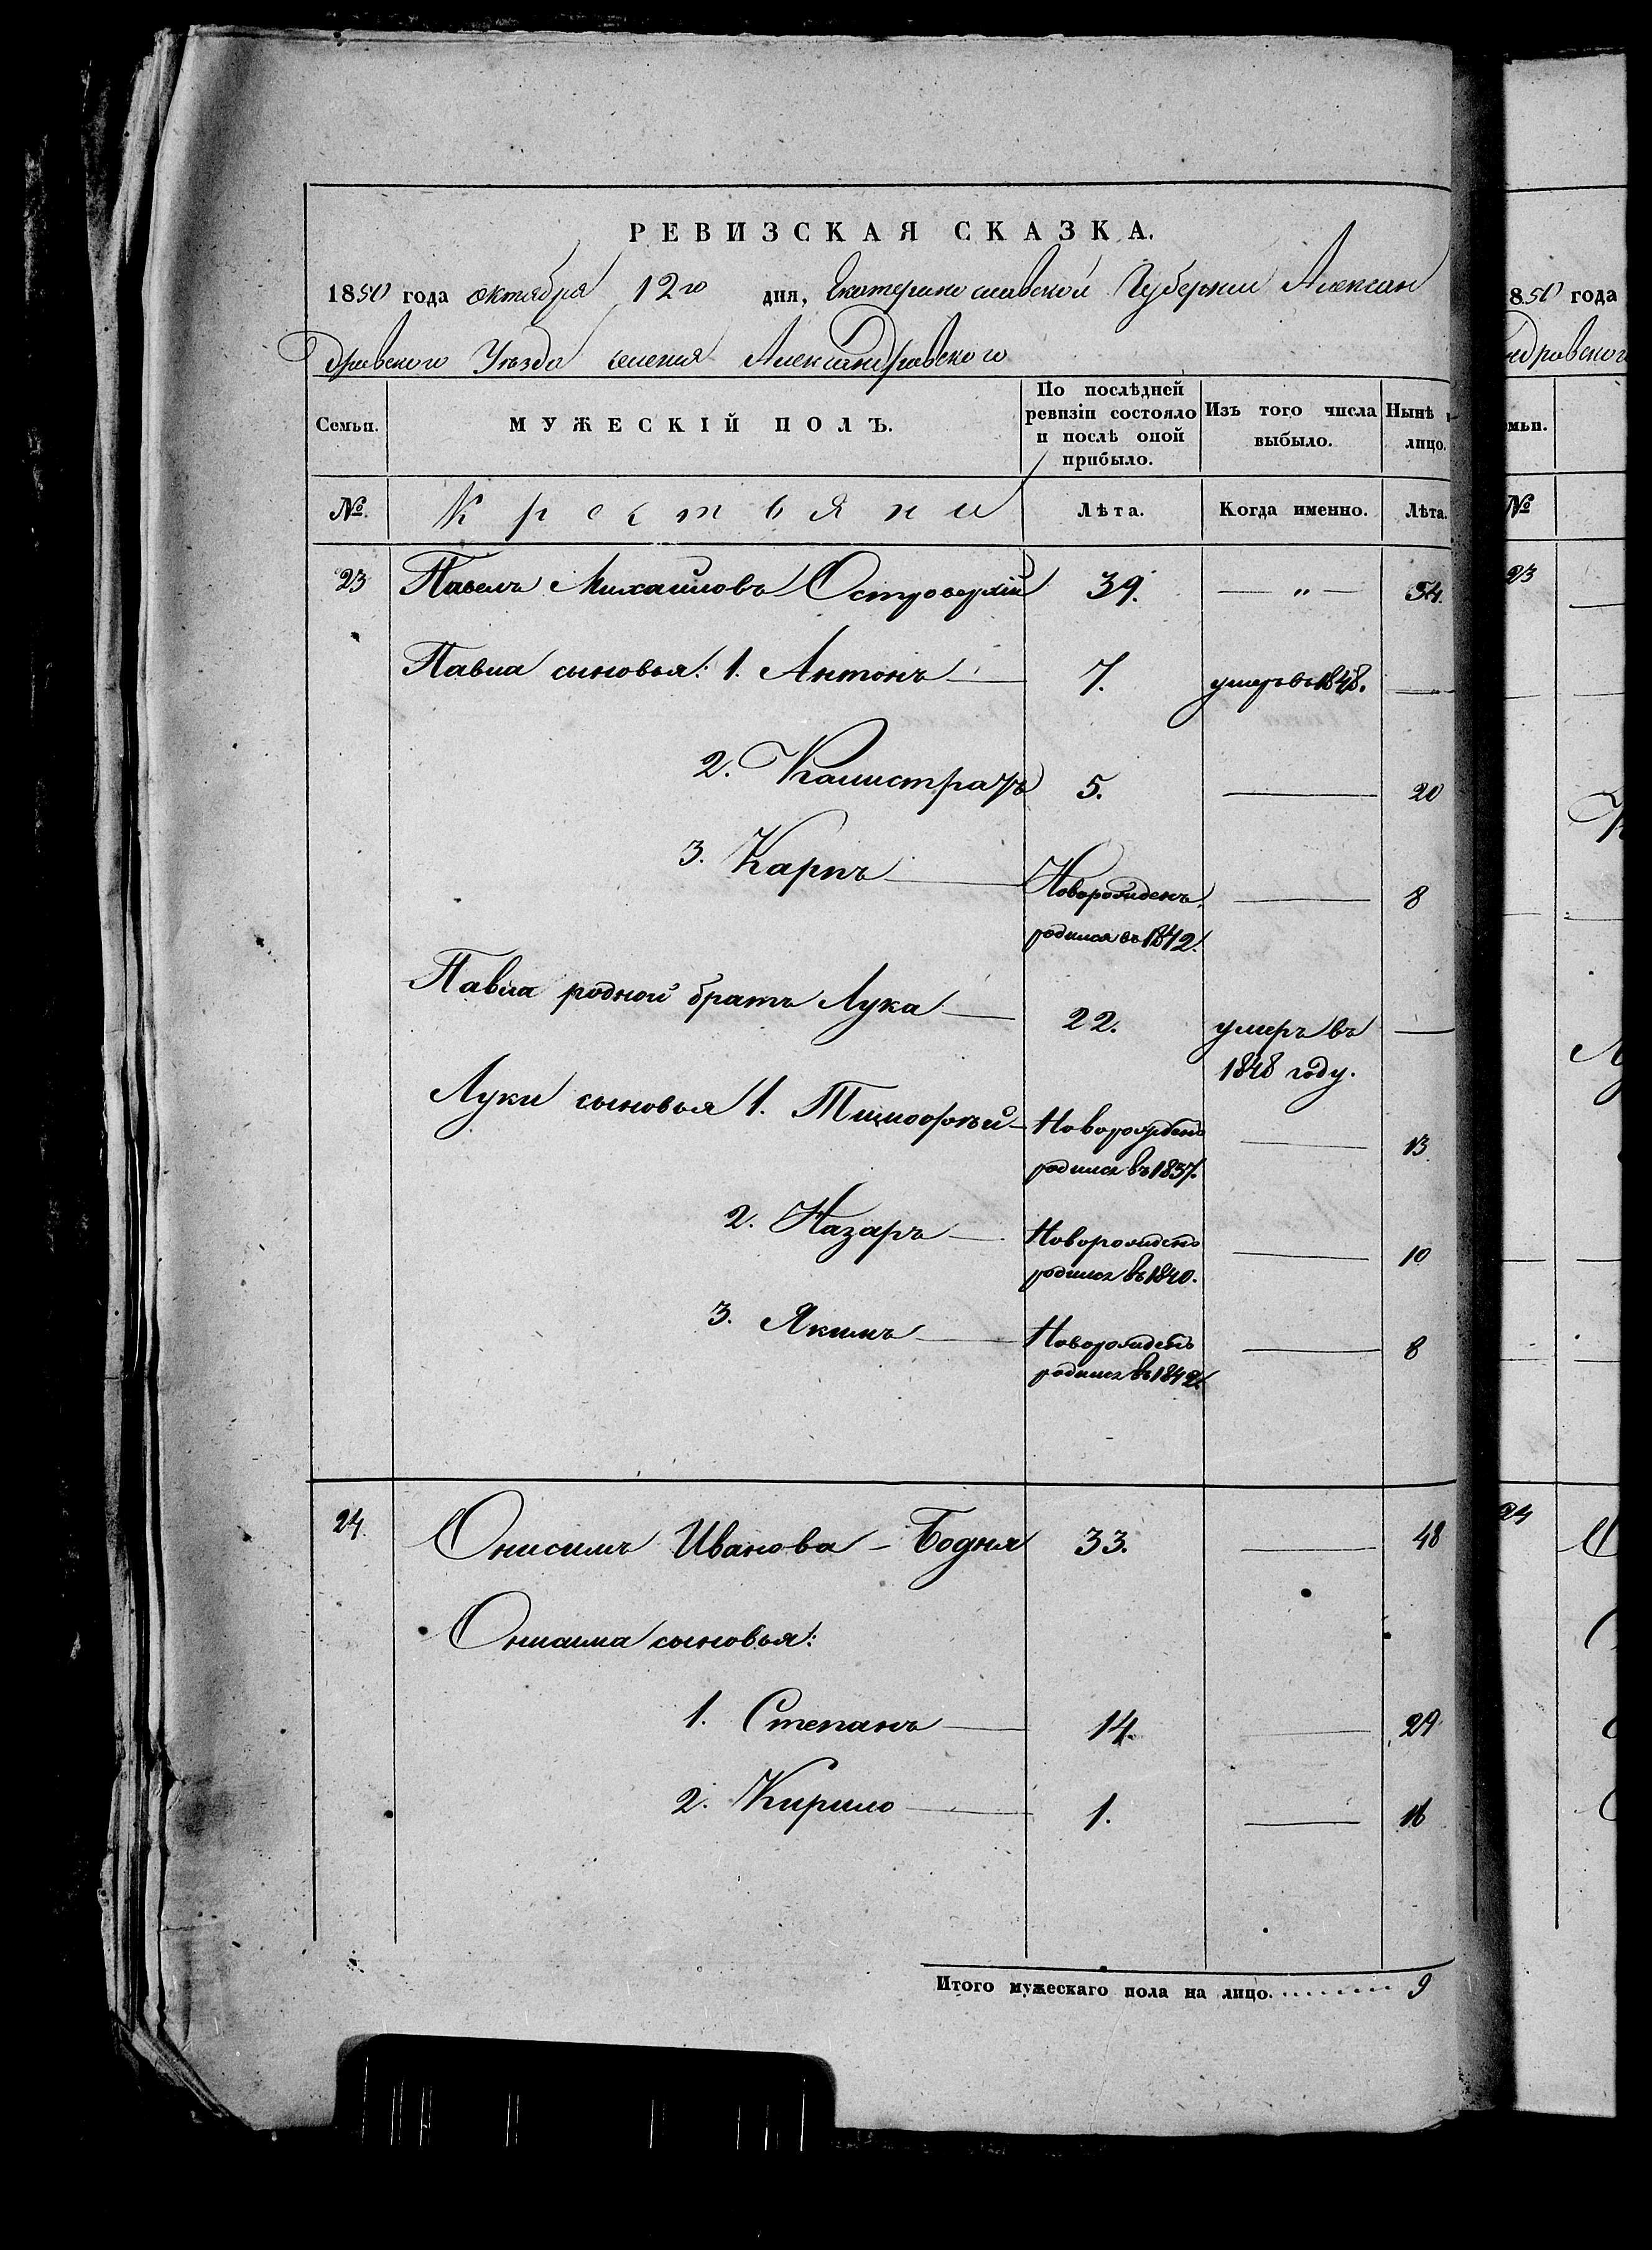 РЕВИЗСКАЯ СКАЗКА.
1850 года октября 12го дня, Екатеринославской Губернии Алексан
дровского Уѣзда селения Александровского
Семьи. МУЖЕСКІЙ ПОЛЪ. По послѣдней ревизіи состояло и послѣ оной прибыло. Изъ того числа выбыло. Нынѣ лицо.
№. Крестьяни Лѣта. Когда именно. Лѣта.
23 Павелъ Михайловъ Островерхій 39. — " — 54.
Павла сыновья: 1. Антонъ 7. умеръ въ 1848. —
2. Калистратъ 5. — 20
3. Карпъ Новорожденъ — 8
родился въ 1842.
Павла родной братъ Лука 22. умеръ въ —
1848 году.
Луки сыновья 1. Тимофѣй Новорожденъ — 13
родился въ 1837.
2. Назаръ Новорожденъ — 10
родился въ 1840.
3. Якимъ Новорожденъ — 8
родился въ 1842.
24. Онисимъ Иванова - Бодня 33. — 48
Онисима сыновья:
1. Степанъ 14. — 29
2. Кирило 1. — 16
Итого мужескаго пола на лицо. 9
850 года
ндровского
мьи.
№
23
24